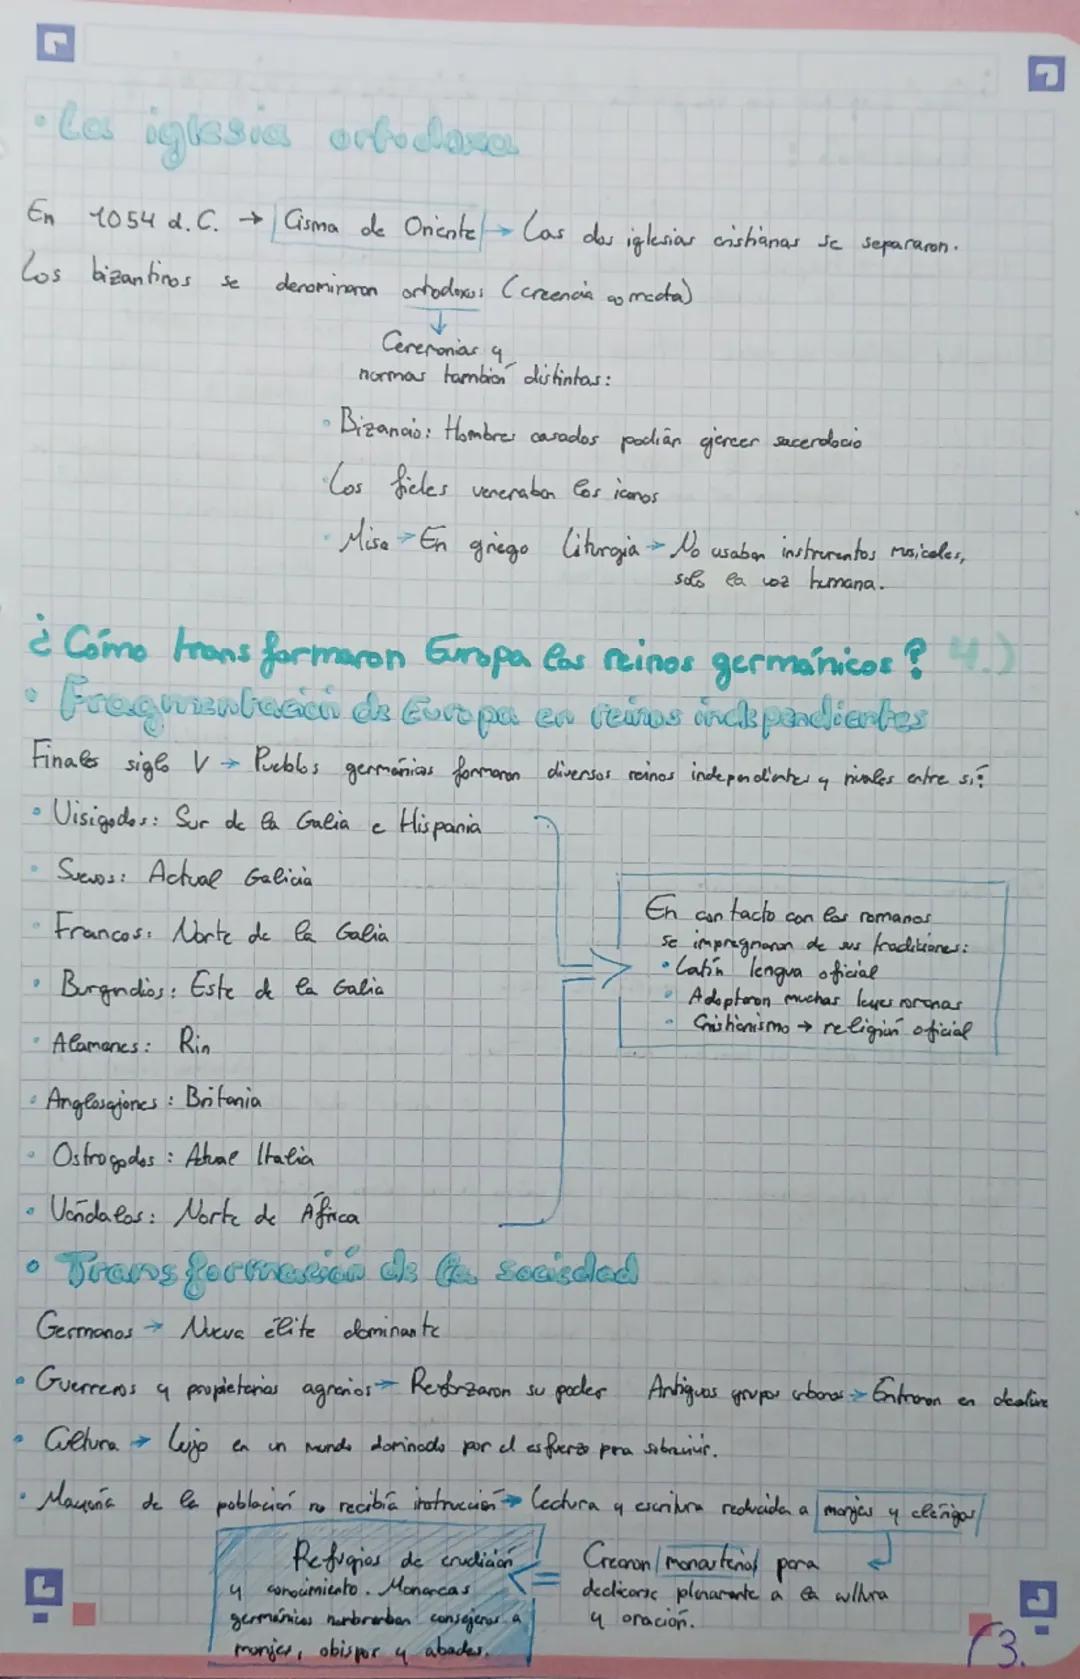 • La iglesia ortodoxa
En 1054 d.C. → Cisma de Oriente → Las dos iglesias cristianas se separaron.
Los bizantinos se denominaron ortodoxos (creencia correcta)
Ceremonias y
normas también distintas:
• Bizancio: Hombres casados podián ejercer sacerdocio
• Los fieles veneraban los iconos
• Misa → En griego Liturgia → No usaban instrumentos musicales,
solo la voz humana.
¿Cómo transformaron Europa los reinos germánicos? 4.)
• Fragmentación de Europa en reinos independientes
Finales siglo V → Pueblos germánicos formaron diversos reinos independientes y rivales entre sí:
• Visigodos: Sur de la Galia e Hispania
• Suevos: Actual Galicia
• Francos: Norte de la Galia
• Burgundios: Este de la Galia
• Alamanes: Rin
• Anglosajones: Britania
• Ostrogodos: Actual Italia
• Vándalos: Norte de África
En contacto con los romanos
se impregnaron de sus tradiciones:
• Latín lengua oficial
• Adoptaron muchas leyes romanas
• Cristianismo → religión oficial
• Transformación de la sociedad
Germanos → Nueva élite dominante
• Guerreros y propietarios agrarios → Reforzaron su poder Antiguos grupos urbanos → Entraron en declive
• Cultura → Lujo en un mundo dominado por el esfuerzo para sobrevivir.
• Mayoría de la población no recibía instrucción → Lectura y escritura reducida a monjes y clérigos
Crearon monasterios para
dedicarse plenamente a la cultura
y oración.
Refugios de erudición
y conocimiento. Monarcas
germánicos nombraban consejeros a
monjes, obispos y abades.
13.